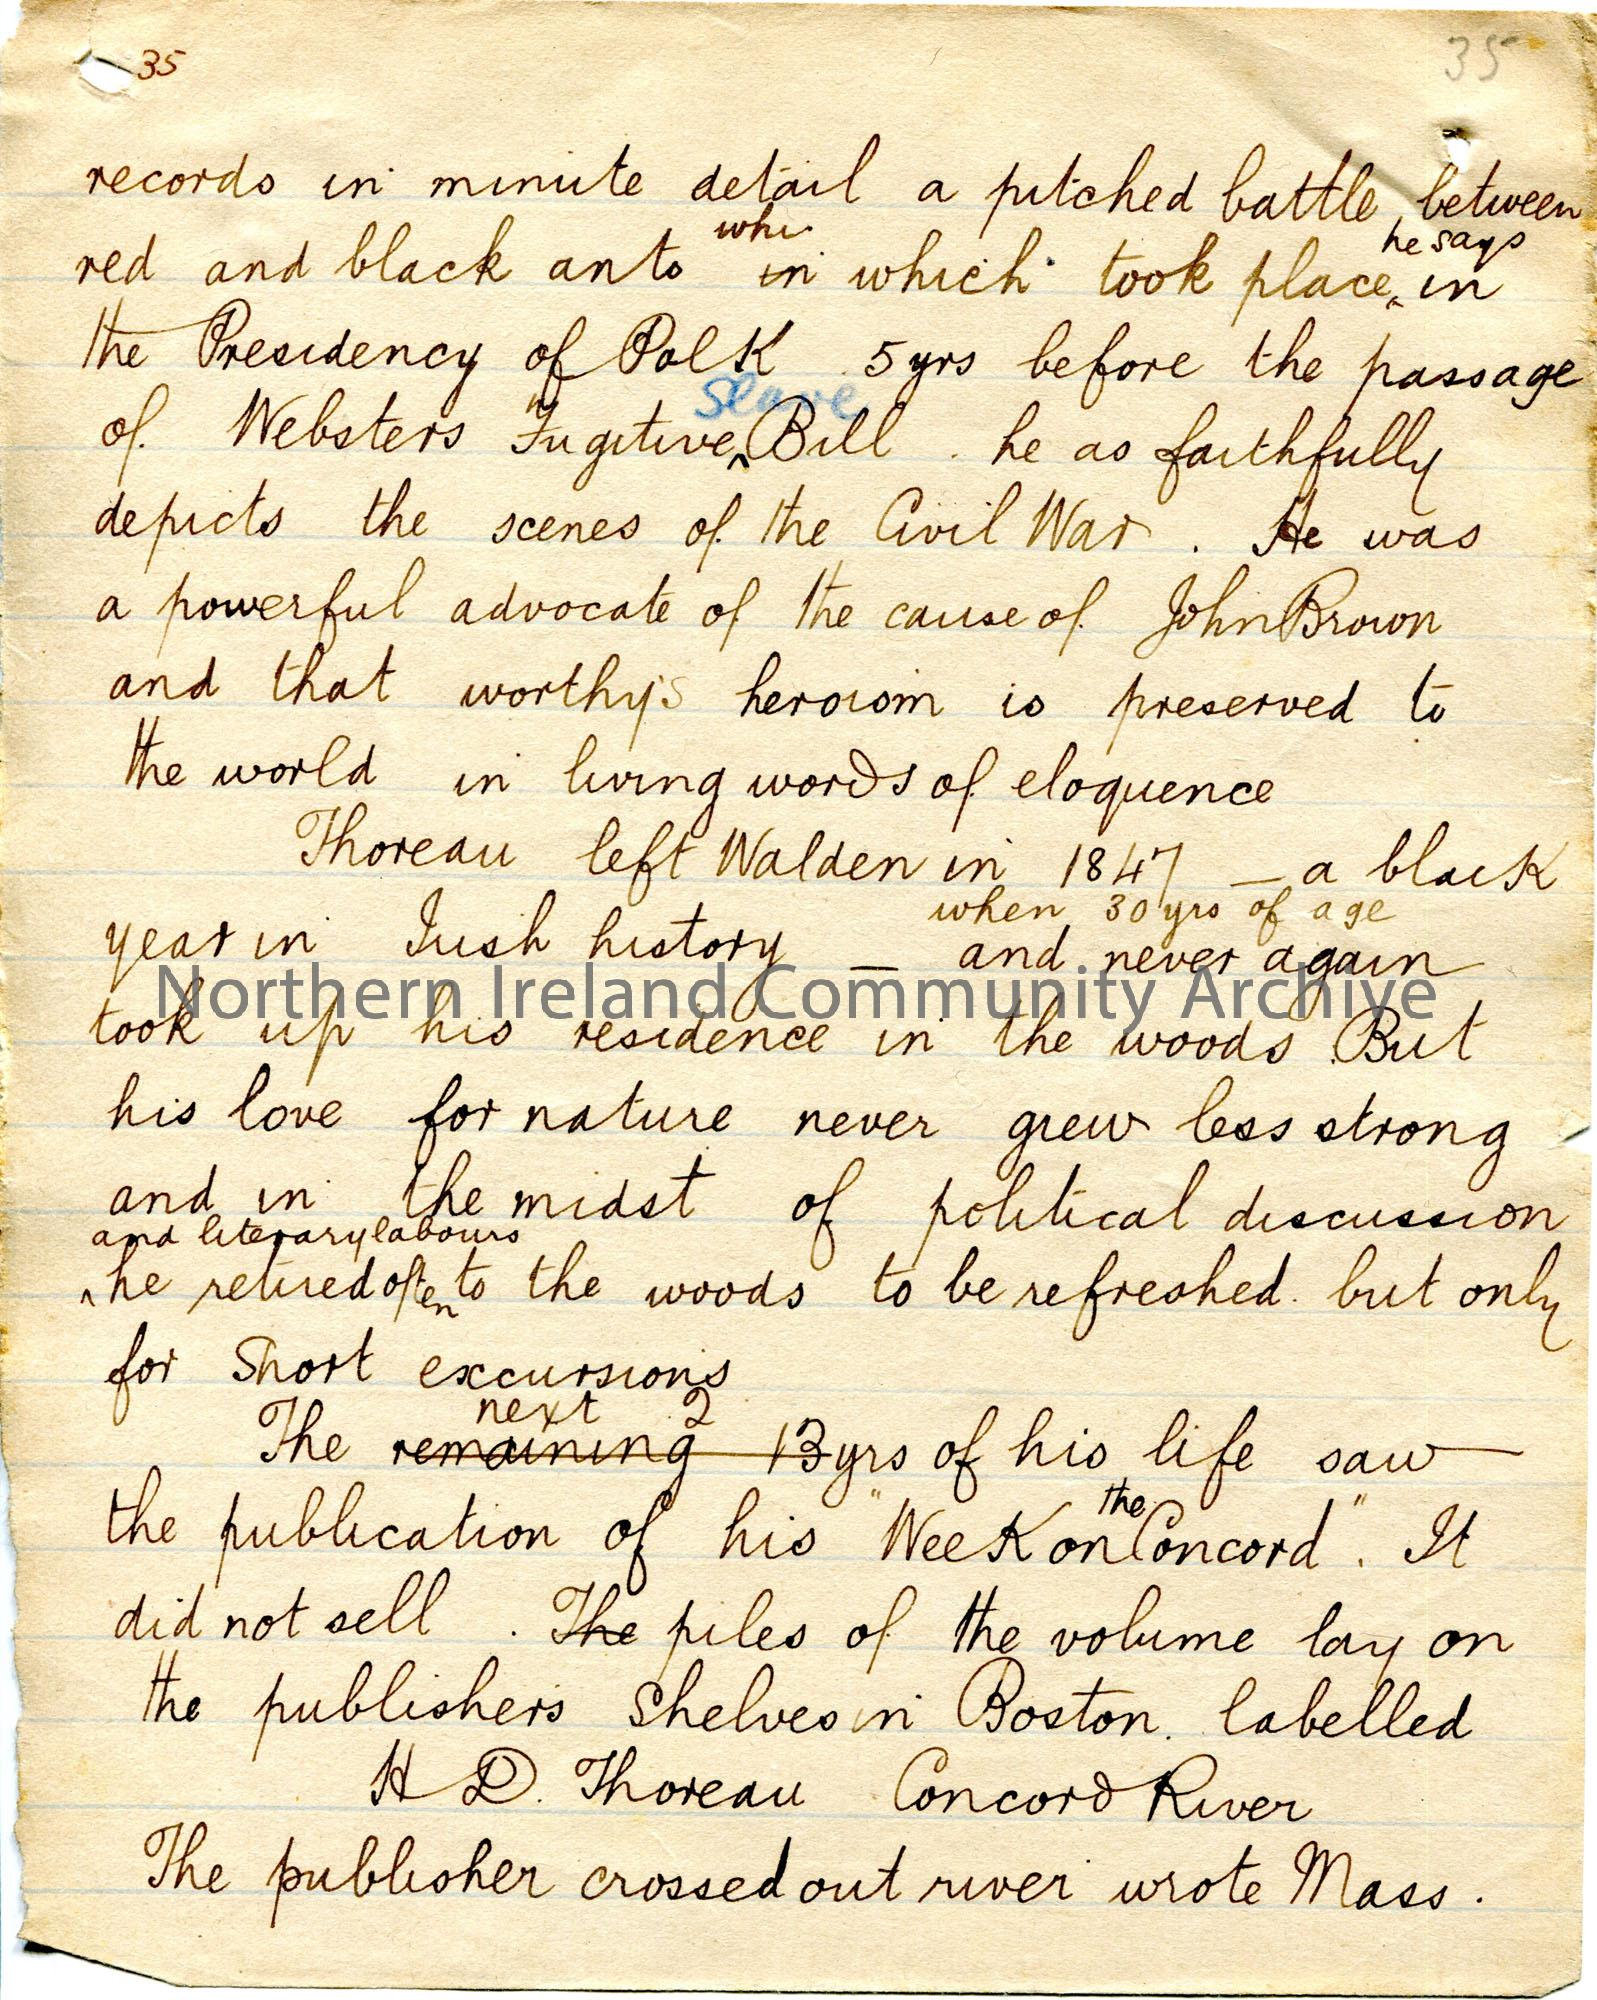 35
35
records in minute detail a pitched battle between
whi
he says
red and black ants in which took place, in
the Presidency of Polk 5 yrs before the passage
Slave
of Websters "Fugitive Bill. he as faithfully
depicts the scenes of the Civil War. He was
a powerful advocate of the cause of John Brown
and that worthy's heroism is preserved to
the world in living words of eloquence
Thoreau left Walden in 1847 — a black
when 30 yrs of age
year in Irish history — and never again
Northern Ireland Community Archive
took up his residence in the woods. But
his love for nature never grew less strong
and in the midst of political discussion
and literary labours
he retired often to the woods to be refreshed. but only
for short excursions
next 2
The remaining 13 yrs of his life saw
the
the publication of his "Week on Concord". It
did not sell. The piles of the volume lay on
the publishers shelves in Boston. labelled
H D. Thoreau Concord River
The publisher crossed out river wrote Mass.